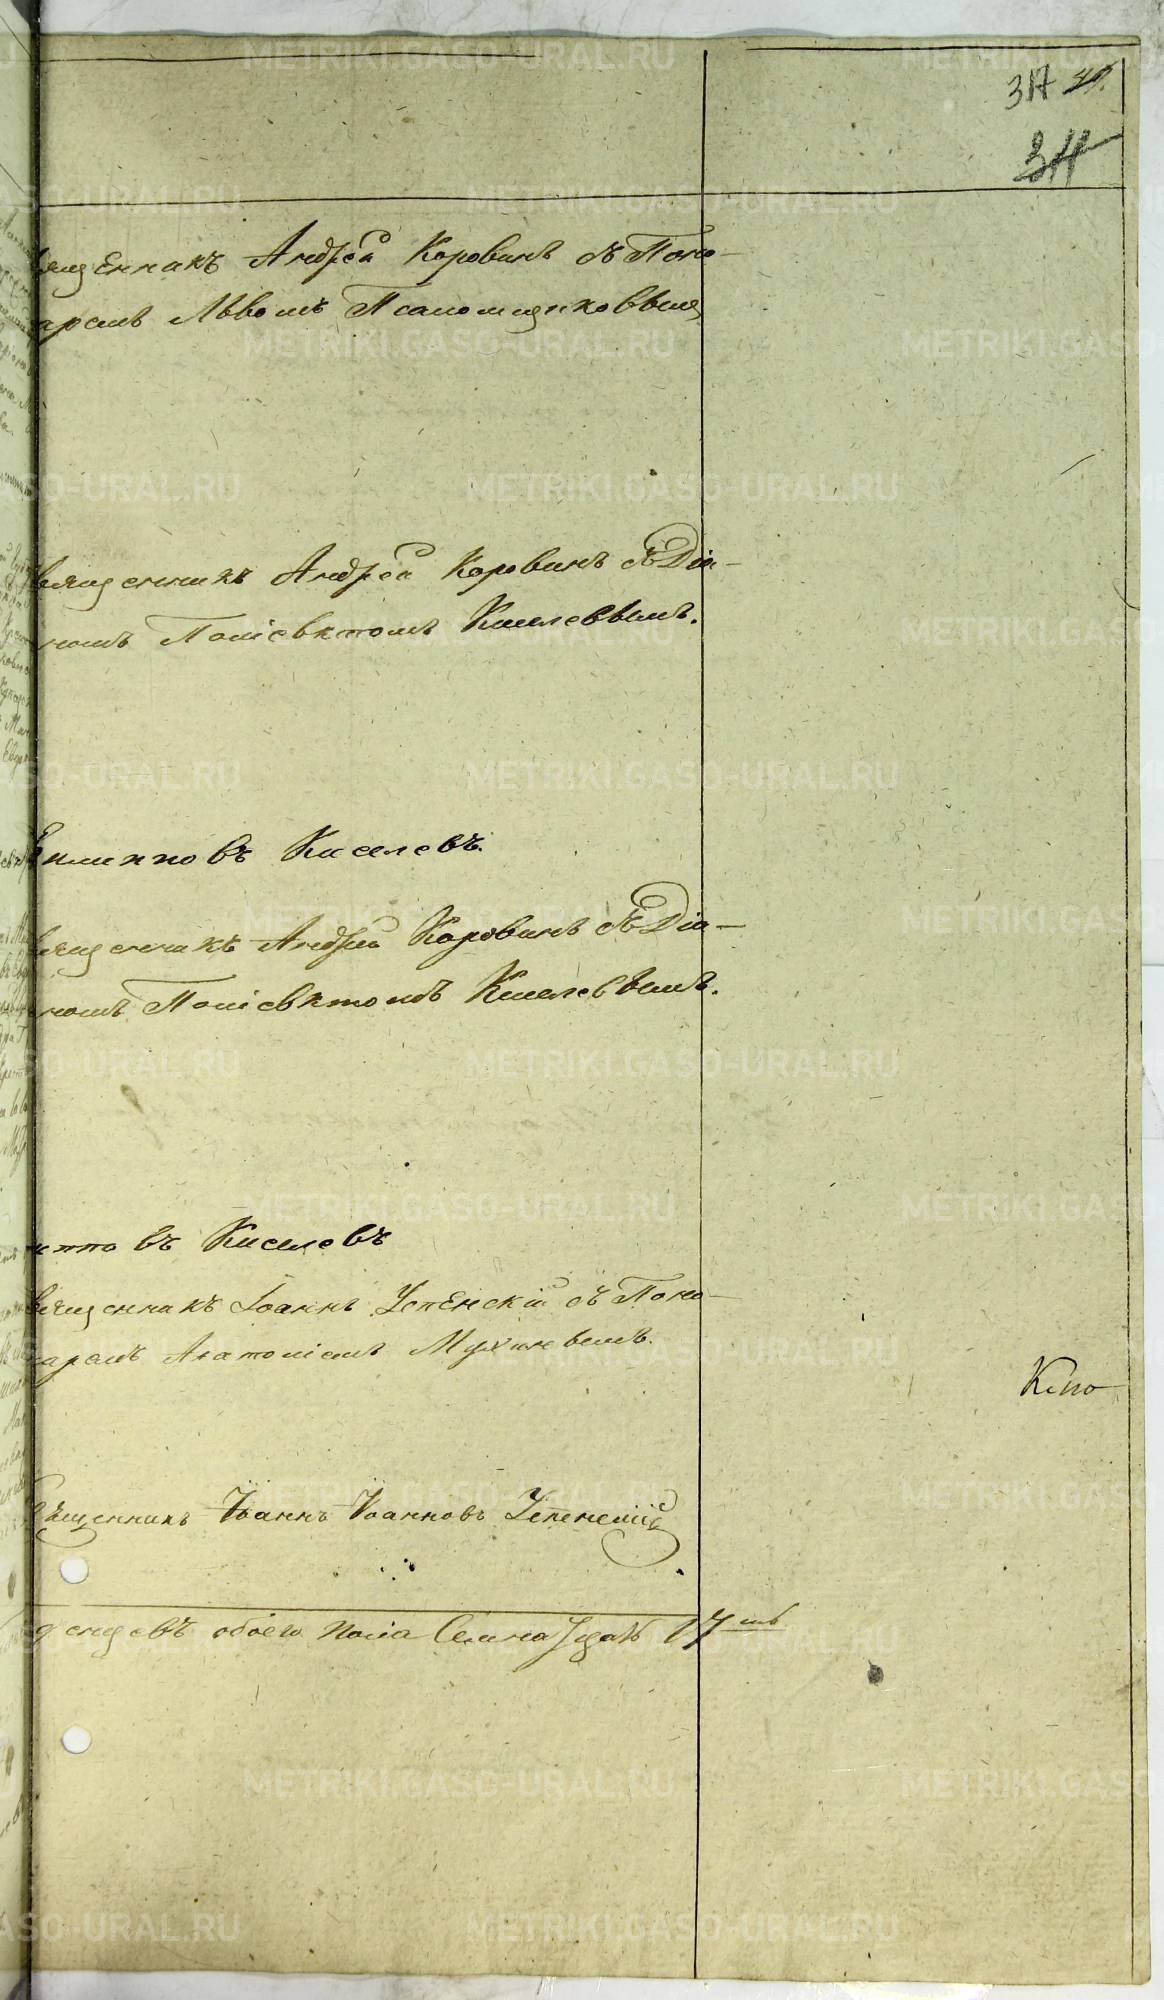 317 49.
311
вященникъ Андрей Коровинъ съ Поно-
аремъ Львомъ Псаломщиковымъ
вященникъ Андрей Коровинъ съ Діа-
номъ Поліевктомъ Киселевымъ.
Филипповъ Киселевъ.
вященникъ Андрей Коровинъ съ Діа-
номъ Поліевктомъ Киселевымъ.
иповъ Киселевъ
вященникъ Іоаннъ Успенскій съ Поно-
аремъ Анатоліемъ Мухинымъ.
К
Священникъ Іоаннъ Іоанновъ Успенскій
денцевъ обоего пола Семна дцать 17ть
METRIKI.GASO-URAL.RU